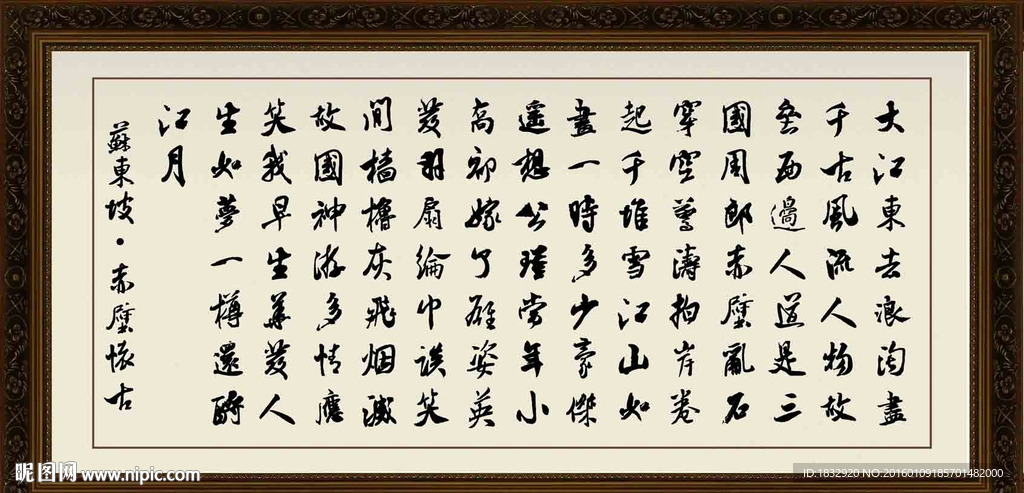 大江東去浪淘盡
千古風流人物故
垒西邊人道是三
國周郎赤壁亂石
穿空驚濤拍岸卷
起千堆雪江山如
畫一時多少豪傑
遥想公瑾當年小
喬初嫁了雄姿英
發羽扇綸巾談笑
間檣櫓灰飛烟滅
故國神游多情應
笑我早生華發人
生如夢一樽還酹
江月
蘇東坡·赤壁懷古
昵图网 www.nipic.com
ID:1832920 NO:20160109185701482000